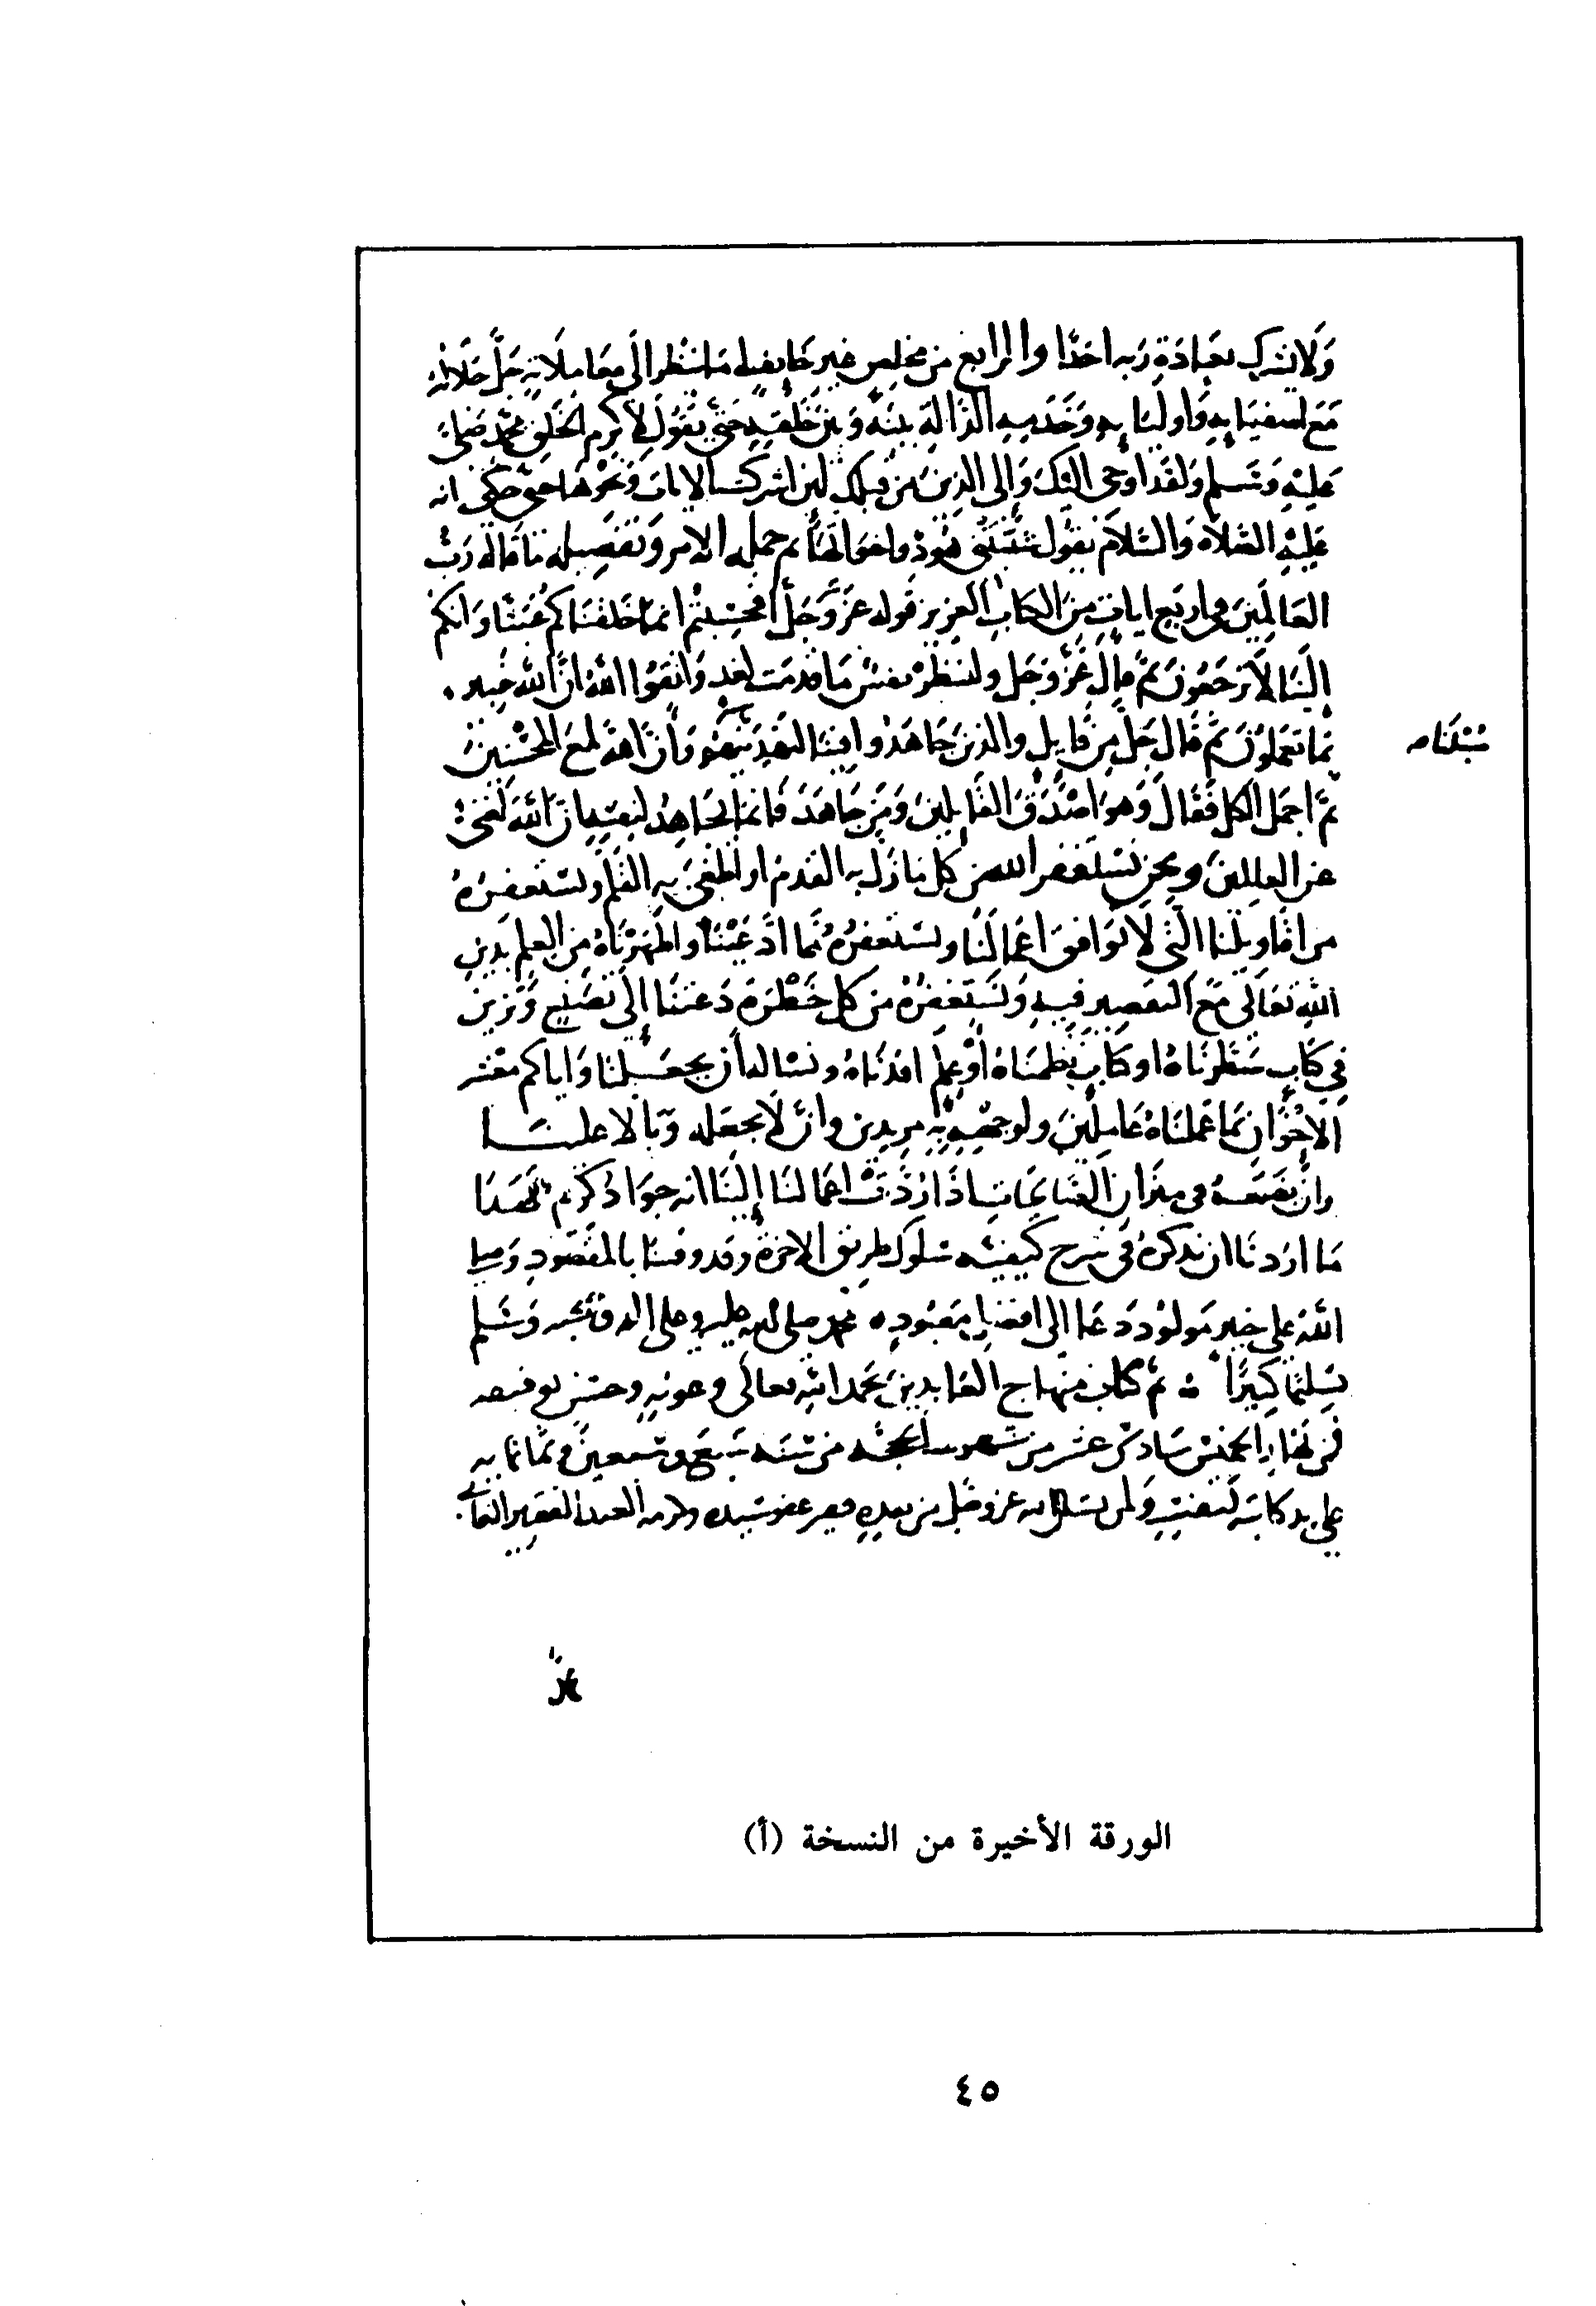 ولا يشرك بعبادة ربه احدا والرابع من مخلص غير خايف اما ينظر الى معاملاته جل جلاله
مع اصفيايه واوليايه وخدمه الدالة بينه وبين خلقه حتى يقول لاكرم الخلق محمد صلى
عليه وسلم ولقد اوحى اليك والى الذين من قبلك لين اشركت الايات ونحوها حتى حكى انه
عليه الصلاة والسلام يقول شيبتني هود واخواتها ثم جملة الامر وتفصيله ما قاله رب
العالمين في اربع ايات من الكتاب العزيز قوله عز وجل افحسبتم انما خلقناكم عبثا وانكم
الينا لا ترجعون ثم قال عز وجل ولتنظر نفس ما قدمت لغد واتقوا الله ان الله خبير
بما تعملون ثم قال جل من قايل والذين جاهدوا فينا لنهدينهم وان الله لمع المحسنين
سبلنا
ثم اجمل الكل فقال وهو اصدق القايلين ومن جاهد فانما يجاهد لنفسه ان الله لغني
عن العالمين ونحن نستغفر الله من كل ما زل به القدم او طغى به القلم ونستغفره
من اقاويلنا التي لا توافق اعمالنا ونستغفره مما ادعيناه واظهرناه من العلم بدين
الله تعالى مع التقصير فيه ونستغفره من كل خطرة دعتنا الى تصنع وتزين
في كتاب سطرناه او كتاب نظمناه او علم افدناه ونساله ان يجعلنا واياكم معشر
الاخوان بما علمناه عاملين ولوجهه به مريدين وان لا يجعله وبالا علينا
وان يضعه في ميزان الصالحات اذا ردت اعمالنا الينا انه جواد كريم فهذا
ما اردنا ان نذكره في شرح كيفية سلوك طريق الاخرة وقد وفينا بالمقصود وصلى
الله على خير مولود دعا الى افضل معبود محمد صلى الله عليه وعلى اله وصحبه وسلم
تسليما كثيرا تم كتاب منهاج العابدين بحمد الله تعالى وعونه وحسن توفيقه
في نهار الخميس سادس عشر من شهر الحجة من سنة سبع وتسعين وثمانمايه
على يد كاتبه لنفسه ولمن الله عز وجل من بعده عفو سيده وكرمه العبد الفقير

الورقة الأخيرة من النسخة (أ)
٤٥